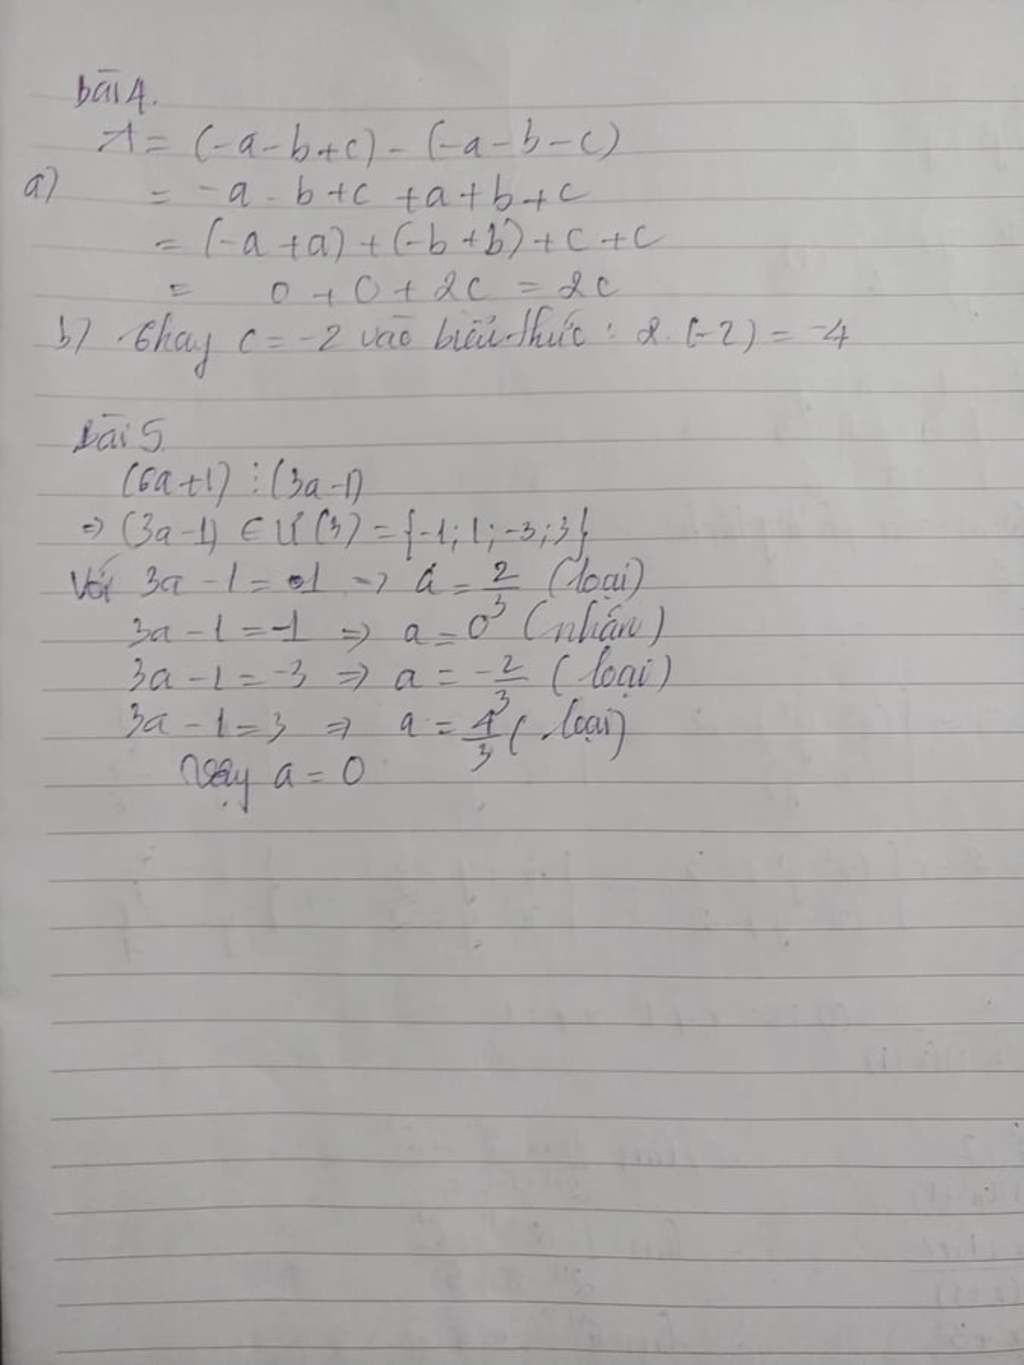 bài 4.
A = (-a - b + c) - (-a - b - c)
a) = -a - b + c + a + b + c
= (-a + a) + (-b + b) + c + c
= 0 + 0 + 2c = 2c
b) Thay c = -2 vào biểu thức : 2. (-2) = -4
bài 5.
(6a+1) ⋮ (3a-1)
=> (3a-1) ∈ Ư(3) = {-1; 1; -3; 3}
Với 3a - 1 = 1 => a = 2/3 (loại)
3a - 1 = -1 => a = 0 (nhận)
3a - 1 = -3 => a = -2/3 (loại)
3a - 1 = 3 => a = 4/3 (loại)
Vậy a = 0